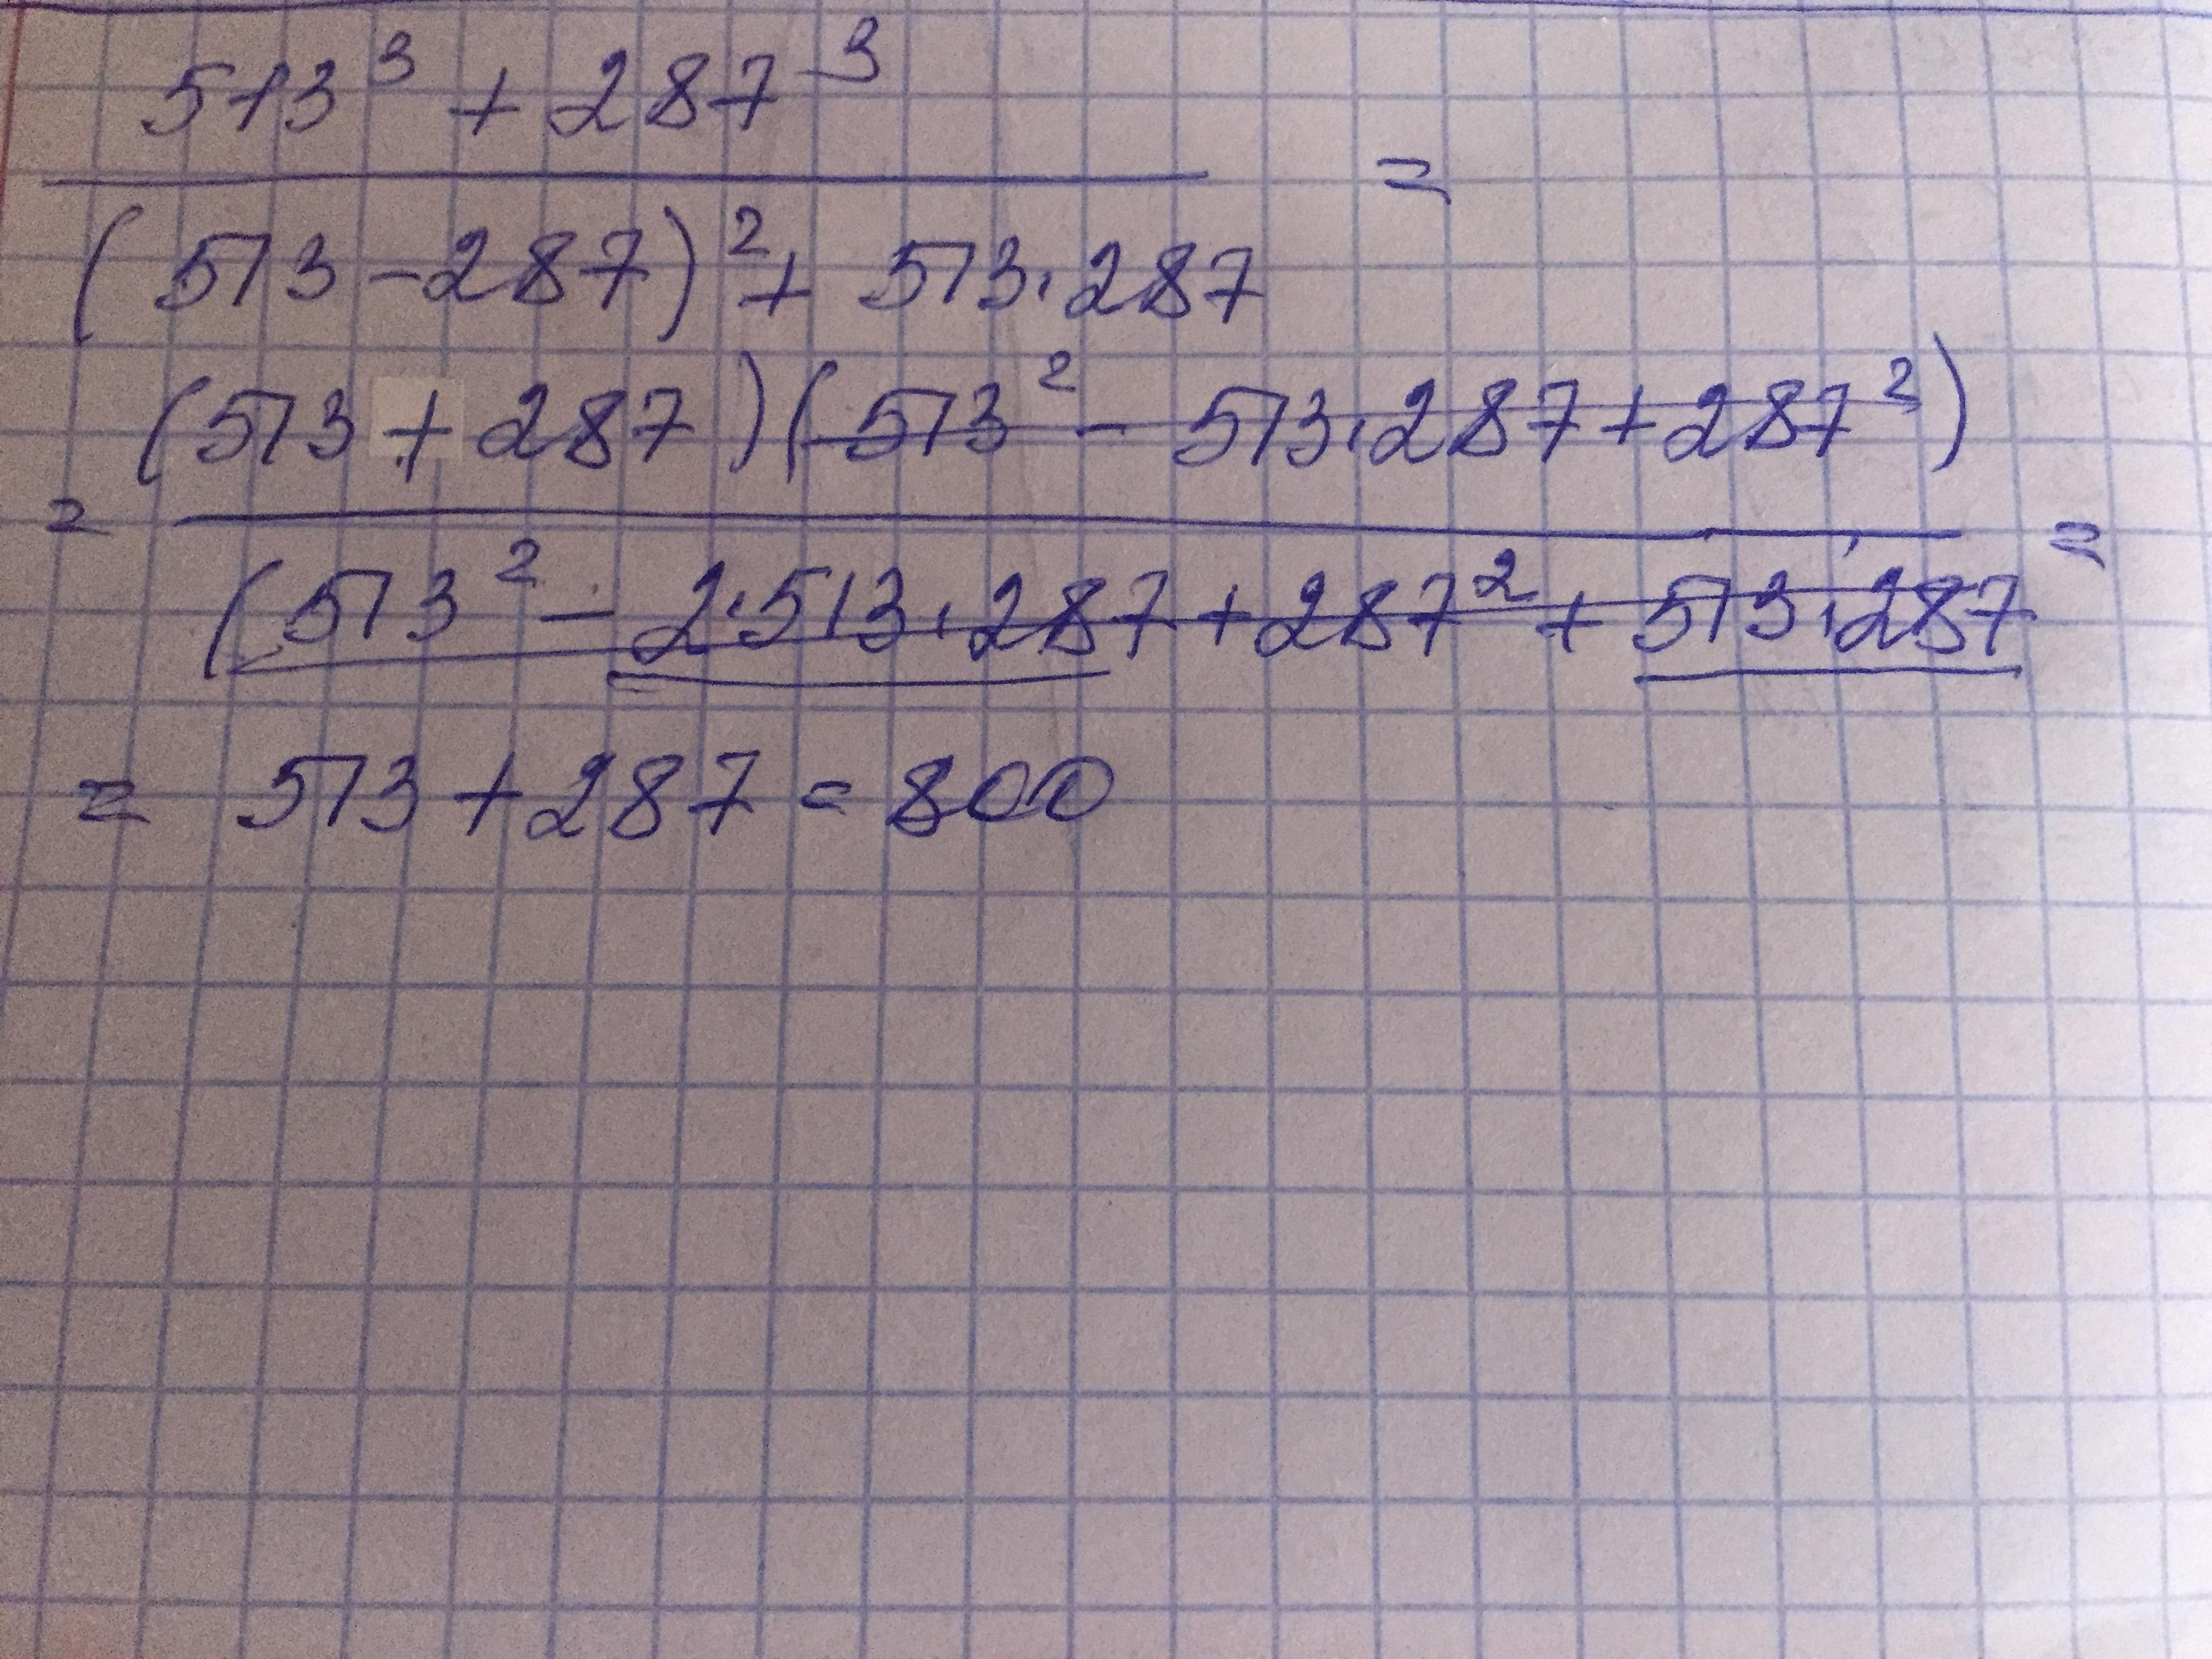 513³ + 287³
=
(513 - 287)² + 513 · 287
(513 + 287)(513² - 513 · 287 + 287²)
= =
(513² - 2 · 513 · 287 + 287² + 513 · 287
= 513 + 287 = 800